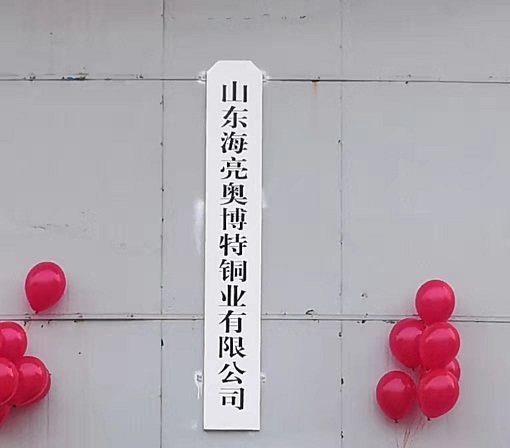 山东海亮奥博特铜业有限公司